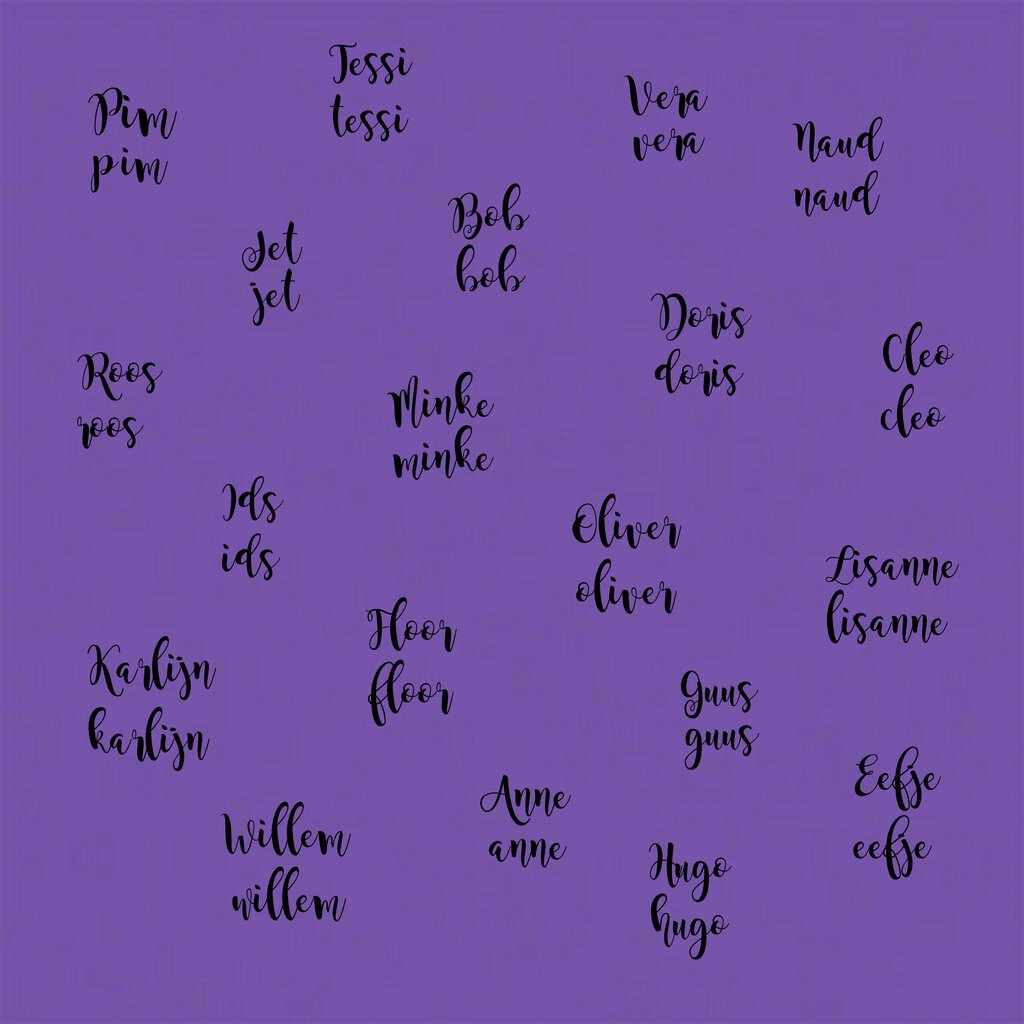 Tessi
tessi
Pim
pim
Vera
vera
Naud
naud
Bob
bob
Jet
jet
Doris
doris
Cleo
cleo
Roos
roos
Minke
minke
Ids
ids
Oliver
oliver
Lisanne
lisanne
Floor
floor
Karlijn
karlijn
Guus
guus
Eefje
eefje
Anne
anne
Willem
willem
Hugo
hugo